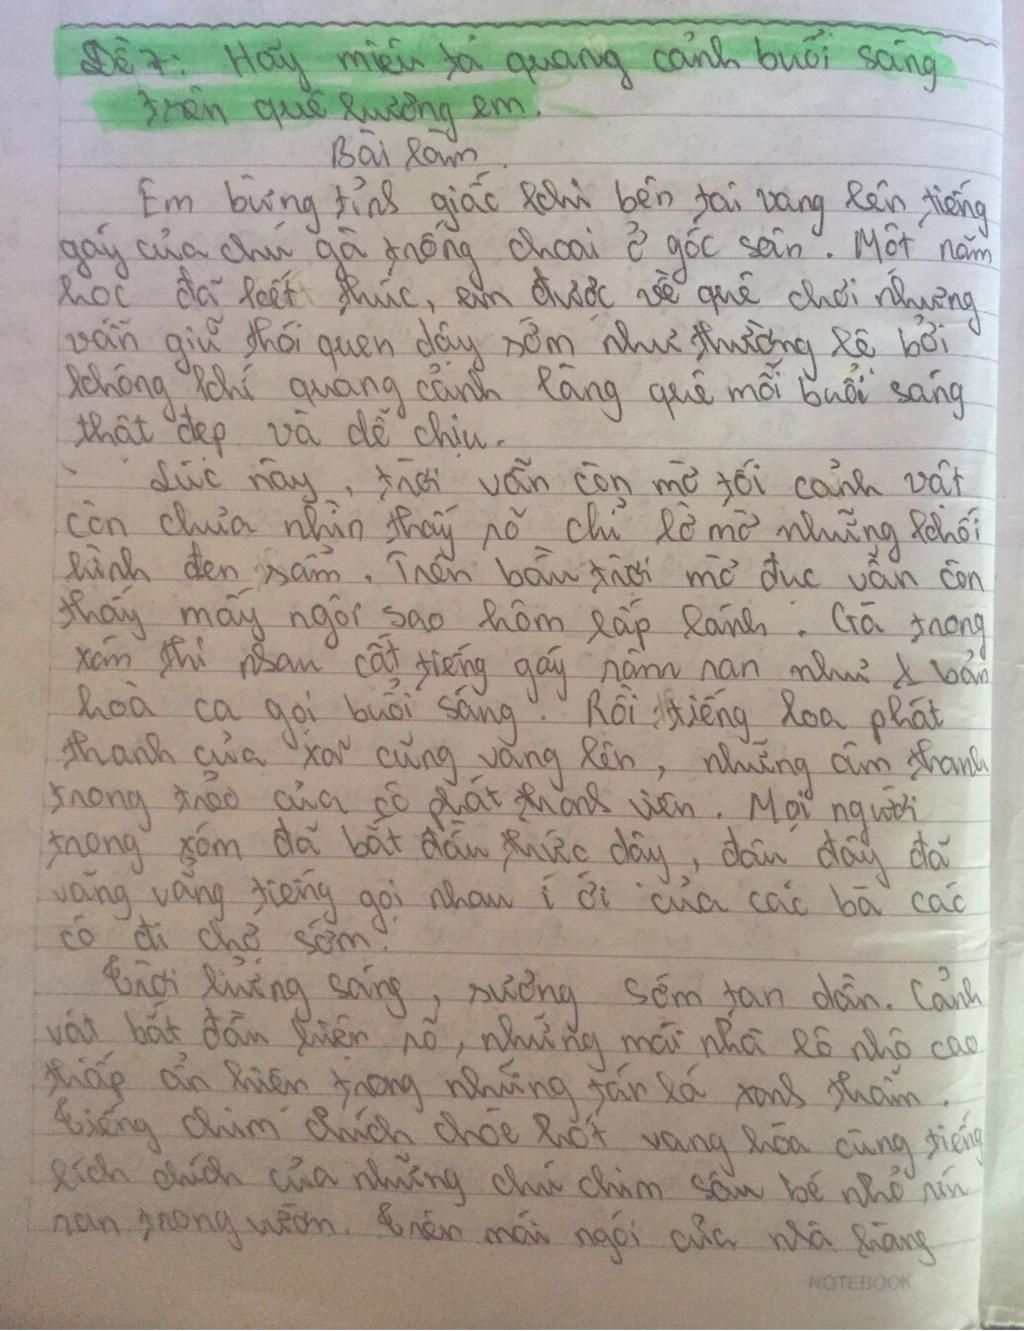 Đề 7: Hãy miêu tả quang cảnh buổi sáng
trên quê hương em.
Bài làm.
Em bừng tỉnh giấc khi bên tai vang lên tiếng
gáy của chú gà trống choai ở góc sân. Một năm
học đã kết thúc, em được về quê chơi nhưng
vẫn giữ thói quen dậy sớm như thường lệ bởi
không khí quang cảnh làng quê mỗi buổi sáng
thật đẹp và dễ chịu.
Lúc này, trời vẫn còn mờ tối cảnh vật
còn chưa nhìn thấy rõ chỉ lờ mờ những khối
hình đen sẩm. Trên bầu trời mờ đục vẫn còn
thấy mấy ngôi sao hôm lấp lánh. Gà trong
xóm thi nhau cất tiếng gáy râm ran như 1 bản
hoà ca gọi buổi sáng. Rồi tiếng loa phát
thanh của xã cũng vang lên, những âm thanh
trong trẻo của cô phát thanh viên. Mọi người
trong xóm đã bắt đầu thức dậy, đâu đây đã
văng vẳng tiếng gọi nhau í ới của các bà các
cô đi chợ sớm.
Trời hửng sáng, sương sớm tan dần. Cảnh
vật bắt đầu hiện rõ, những mái nhà lô nhô cao
thấp ẩn hiện trong những tán lá xanh thẫm.
Tiếng chim chích choè hót vang hòa cùng tiếng
lích chích của những chú chim sâu bé nhỏ rín
ran trong vườn. Trên mái ngói của nhà hàng
NOTEBOOK